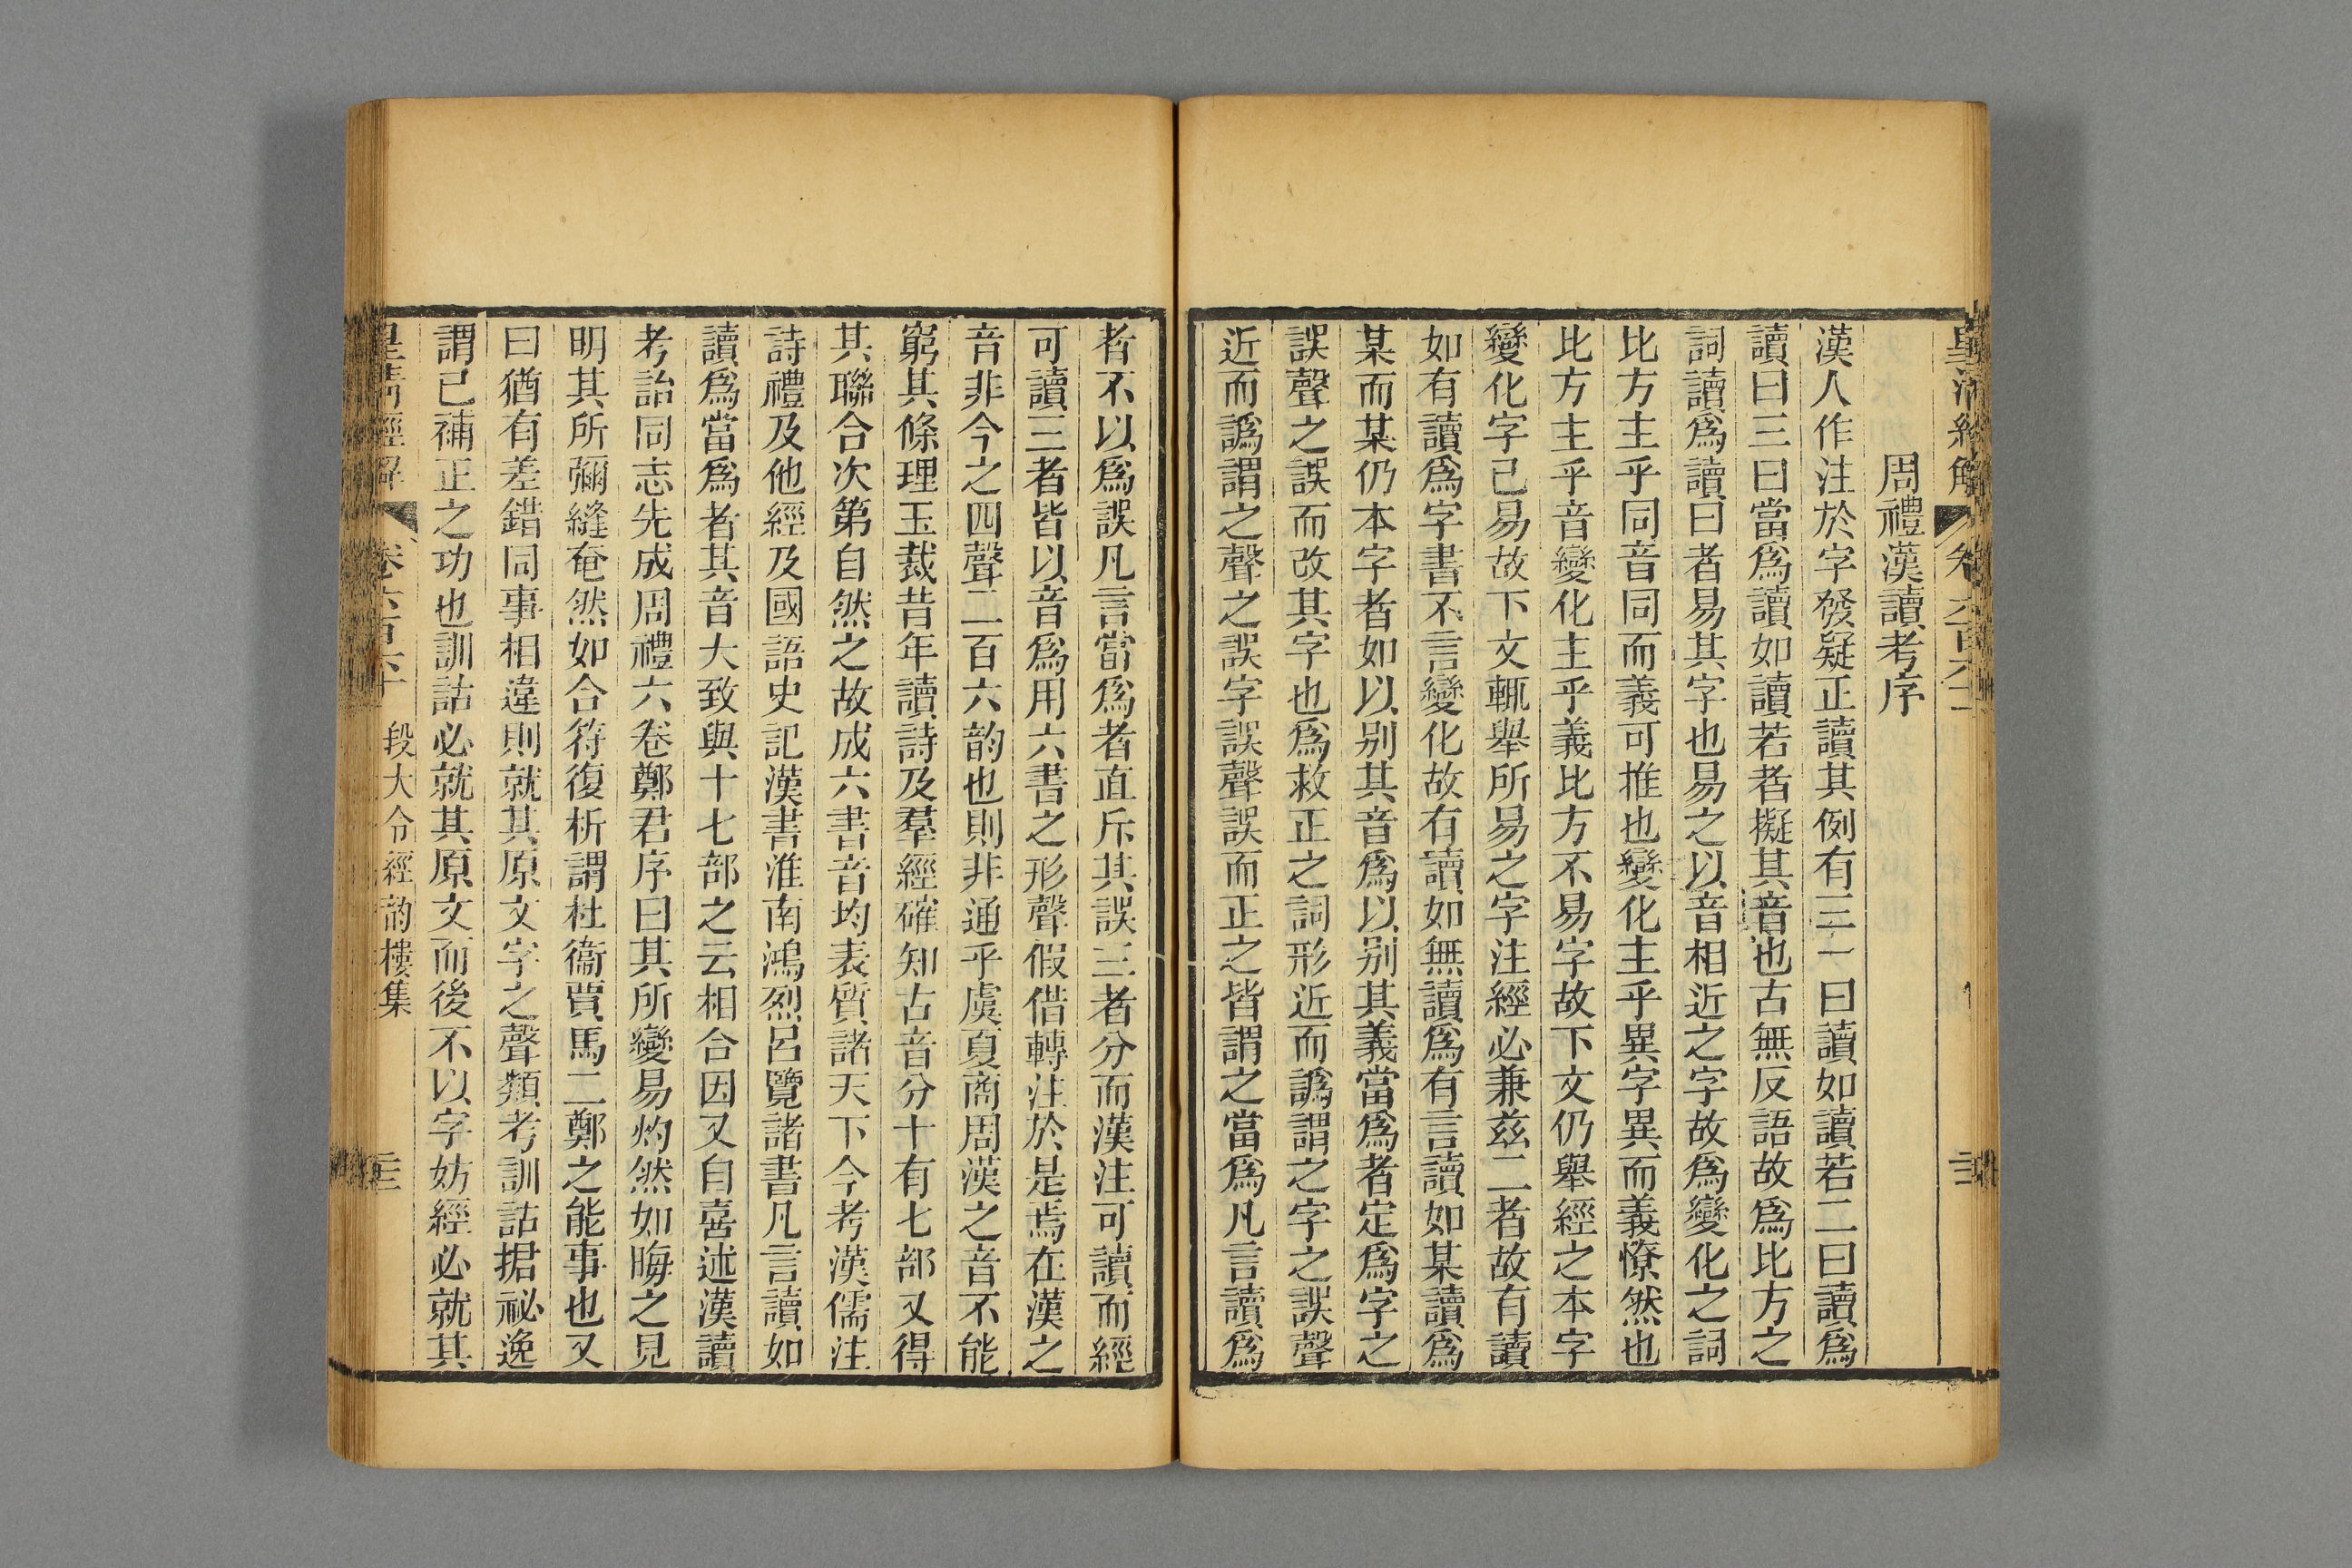 皇清經解
卷六百六十
周禮漢讀考序
漢人作注於字發疑正讀其例有三一曰讀如讀若二曰讀爲
讀曰三曰當爲讀如讀若者擬其音也古無反語故爲比方之
詞讀爲讀曰者易其字也易之以音相近之字故爲變化之詞
比方主乎同音同而義可推也變化主乎異字異而義憭然也
比方主乎音變化主乎義比方不易字故下文仍舉經之本字
變化字已易故下文輒舉所易之字注經必兼茲二者故有讀
如有讀爲字書不言變化故有讀如無讀爲有言讀如某讀爲
某而某仍本字者如以别其音爲以别其義當爲者定爲字之
誤聲之誤而改其字也爲救正之詞形近而譌謂之字之誤聲
近而譌謂之聲之誤字誤聲誤而正之皆謂之當爲凡言讀爲
者不以爲誤凡言當爲者直斥其誤三者分而漢注可讀而經
可讀三者皆以音爲用六書之形聲假借轉注於是焉在漢之
音非今之四聲二百六韵也則非通乎虞夏商周漢之音不能
窮其條理玉裁昔年讀詩及羣經確知古音分十有七部又得
其聯合次第自然之故成六書音均表質諸天下今考漢儒注
詩禮及他經及國語史記漢書淮南鴻烈呂覽諸書凡言讀如
讀爲當爲者其音大致與十七部之云相合因又自喜述漢讀
考詒同志先成周禮六卷鄭君序曰其所變易灼然如晦之見
明其所彌縫奄然如合符復析謂杜衞賈馬二鄭之能事也又
曰猶有差錯同事相違則就其原文字之聲類考訓詁捃祕逸
謂已補正之功也訓詁必就其原文而後不以字妨經必就其
皇清經解
卷六百六十
段大令經韵樓集